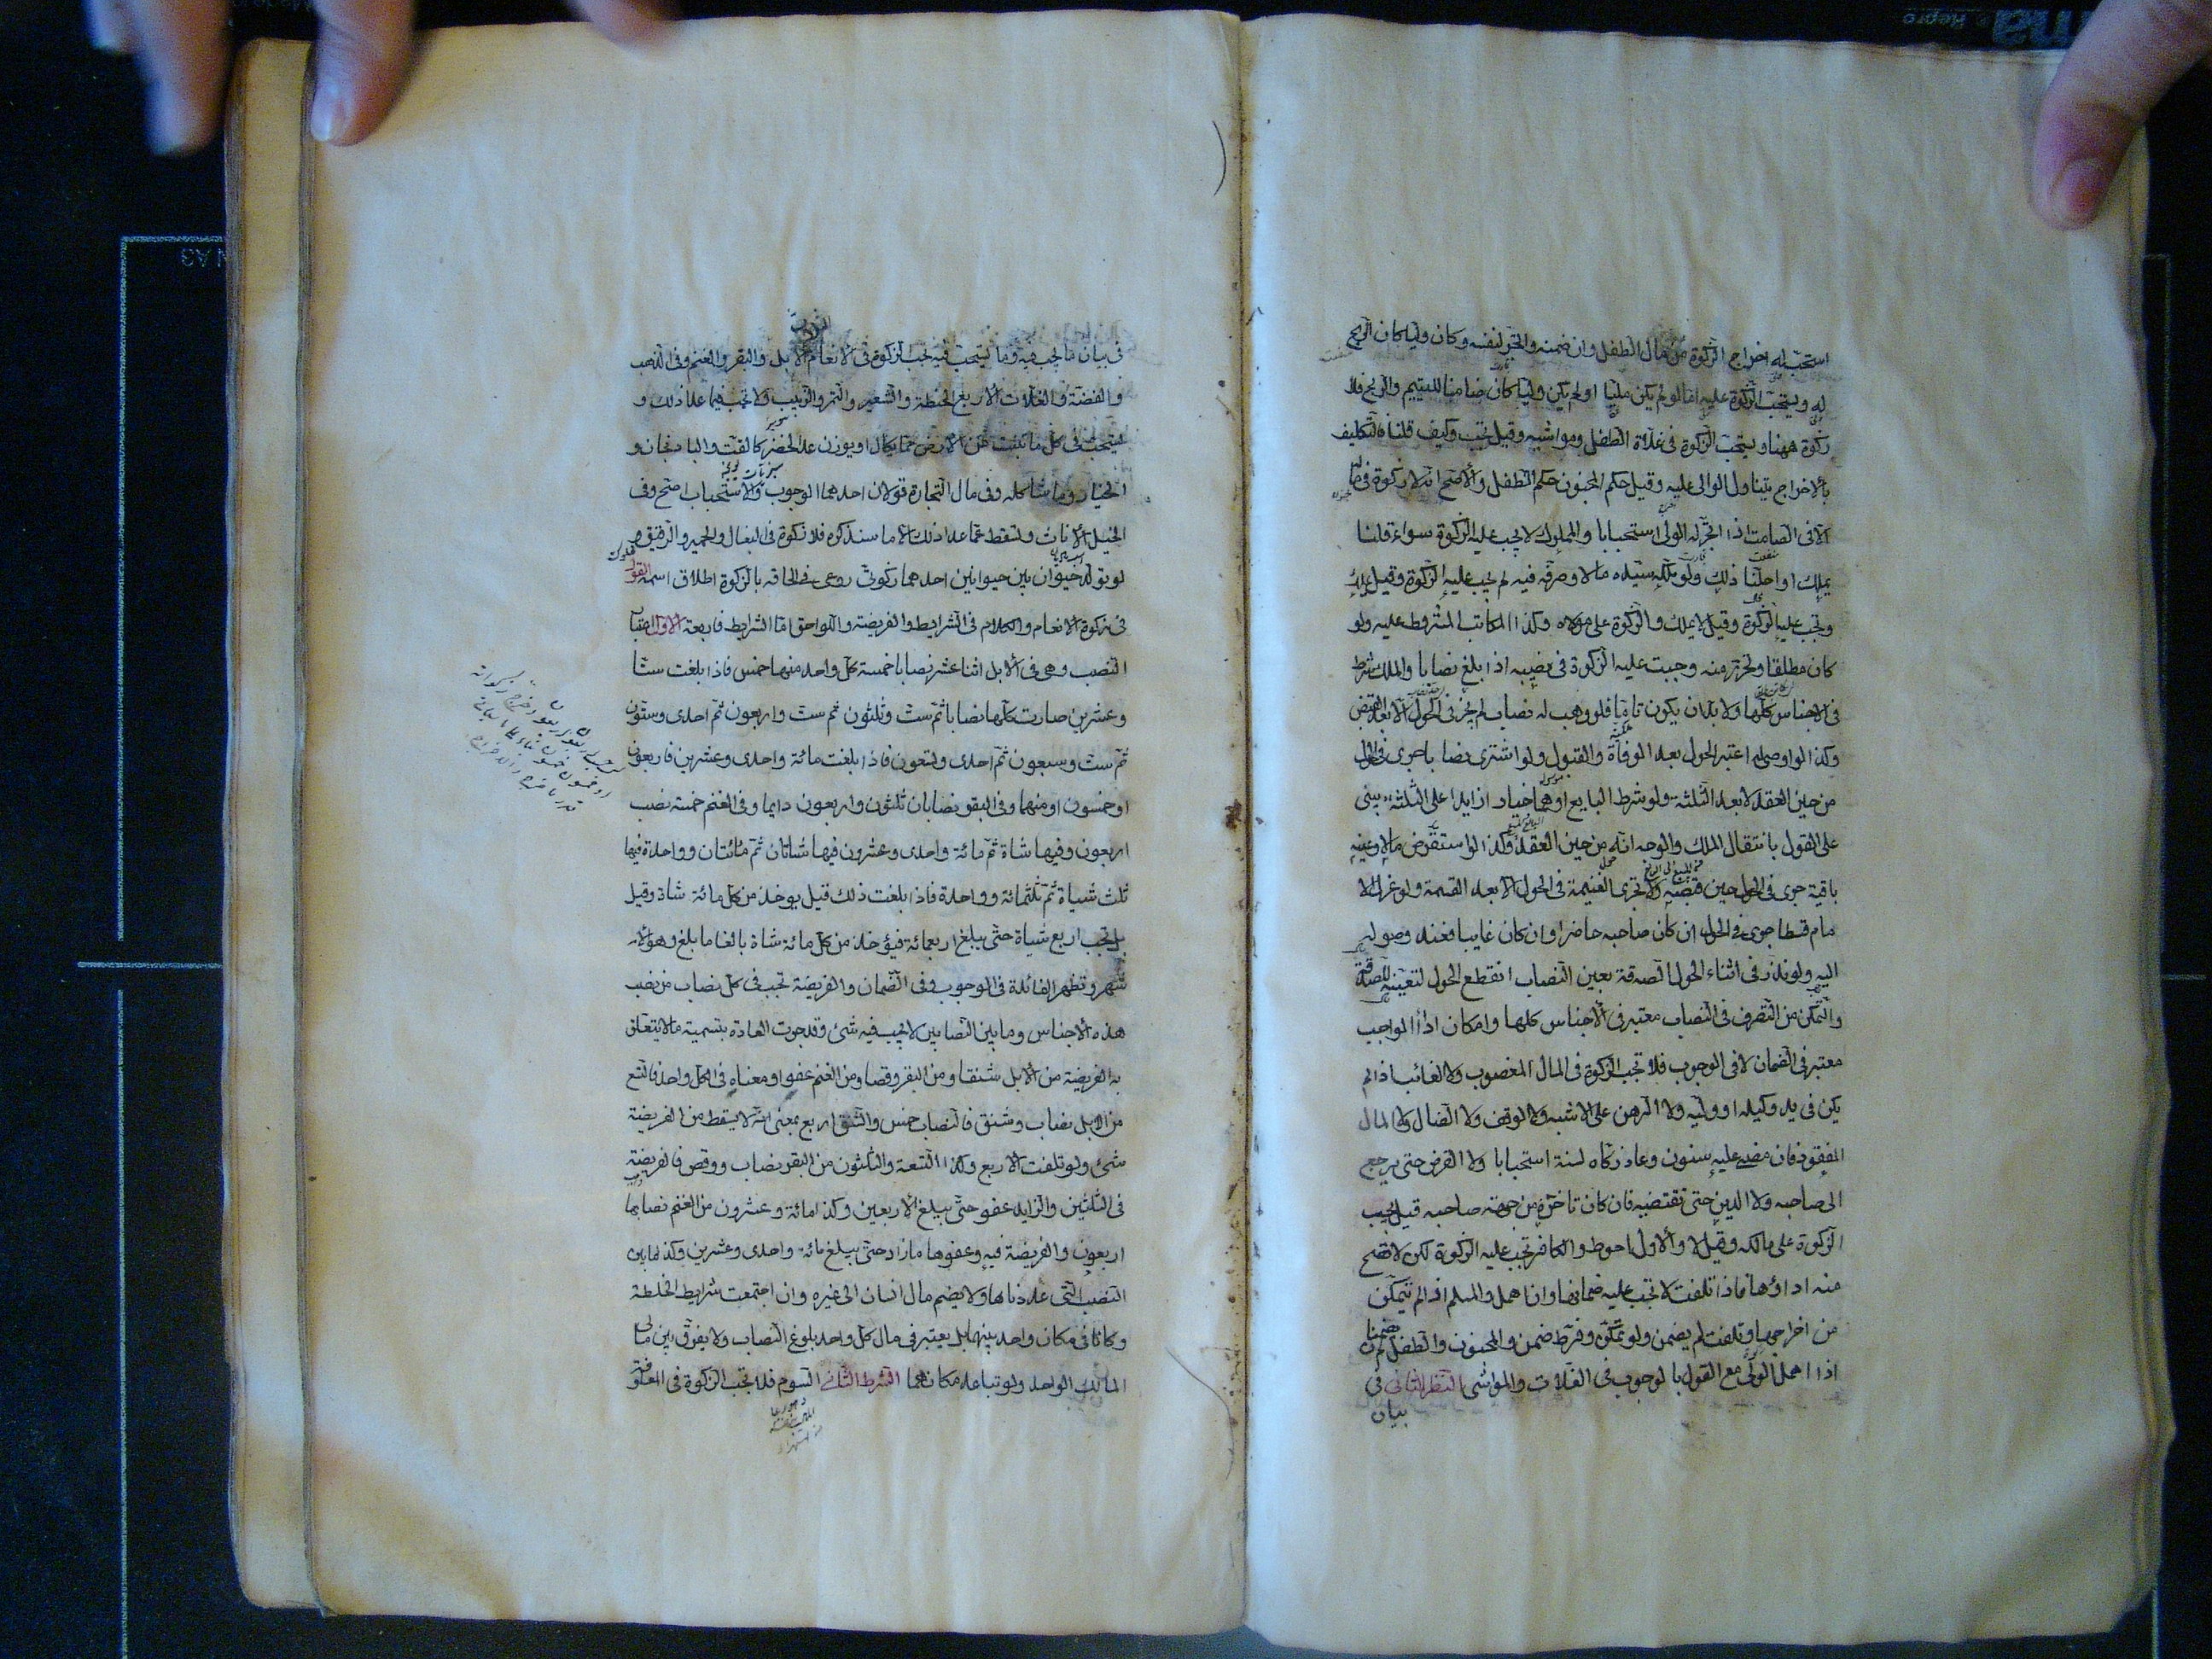 استحب له اخراج الزكوة من مال الطفل وان ضمنه واتجر لنفسه وكان وليا كان الربح
له ويستحب الزكوة عليه اما لو لم يكن مليا او لم يكن وليا كان ضامنا لليتيم والربح فلا
زكوة ههنا ويستحب الزكوة فى غلاة الطفل ومواشيه وقيل تجب وكيف قلنا فالتكليف
بالاخراج يتناول الوالى عليه وقيل حكم المجنون حكم الطفل والاصح انه لا زكوة فى ماله
الا فى الصامت اذا اتجر له الولى استحبابا والمملوك لا يجب عليه الزكوة سواء قلنا
يملك او احلنا ذلك ولو ملكه سيده مالا وصرفه فيه لم يجب عليه الزكوة وقيل يملك
وتجب عليه الزكوة وقيل لا يملك والزكوة على مولاه وكذا المكاتب المشروط عليه ولو
كان مطلقا وتحرر منه وجبت عليه الزكوة فى نصيبه اذا بلغ نصابا والملك شرط
فى الاجناس كلها ولا بد ان يكون تاما فلو وهب له نصاب لم يجز فى الحول الا بعد القبض
وكذا لو اوصى له اعتبر الحول بعد الوفاة والقبول ولو اشترى نصابا جرى فى الحول
من حين العقد لا بعد الثلثة ولو شرط البايع او هما خيارا زايدا على الثلثة بنى
على القول بانتقال الملك والوجه انه من حين العقد وكذا لو استقرض مالا وعينه
باقية جرى فى الحول حين قبضه ولا تجرى الغنيمة فى الحول الا بعد القسمة ولو عزل الا
مام قسطا جرى فى الحول ان كان صاحبه حاضرا وان كان غايبا فعند وصوله
اليه ولو نذر فى اثناء الحول الصدقة بعين النصاب انقطع الحول لتعينه للصدقة
والتمكن من التصرف فى النصاب معتبر فى الاجناس كلها وامكان اداا الواجب
معتبر فى الضمان لا فى الوجوب فلا تجب الزكوة فى المال المغصوب ولا الغائب اذا لم
يكن فى يد وكيله او وليه ولا الرهن على الاشبه ولا الوقف ولا الضال ولا المال
المفقود فان مضى عليه سنون وعاد زكاه لسنة استحبابا ولا القرض حتى يرجع
الى صاحبه ولا الدين حتى تقتضيه فان كان تاخره من جهة صاحبه قيل يجب
الزكوة على مالكه وقيل لا والاول احوط والكافر تجب عليه الزكوة لكن لا تصح
منه اداؤها فاذا تلفت لا تجب عليه ضمانها وان اهمل والمسلم اذا لم يتمكن
من اخراجها وتلفت لم يضمن ولو تمكن وفرط ضمن والمجنون والطفل لم يضمنا
اذا اهمل الولى مع القول بالوجوب فى الغلات والمواشى النظر الثانى فى
بيان
فى بيان ما يجب فيه وما يستحب فيه تجب الزكوة فى الانعام الابل والبقر والغنم وفى الذهب
والفضة والغلات الاربع الحنطة والشعير والتمر والزبيب ولا تجب فيما عدا ذلك و
يستحب فى كل ما تنبت من الارض مما يكال او يوزن عدا الخضر كالقت والباذنجان و
الخيار وما شاكله وفى مال التجارة قولان احدهما الوجوب والاستحباب اصح وفى
الخيل الاناث وتسقط عما عدا ذلك الا ما سنذكره فلا زكوة فى البغال والحمير والرقيق و
لو تولد حيوان بين حيوانين احدهما زكوتى روعى فى الحاقه بالزكوة اطلاق اسمه القول
فى زكوة الانعام والكلام فى الشرايط والفريضة واللواحق اما الشرايط فاربعة الاول اعتبار
النصب وهى فى الابل اثنا عشر نصابا خمسة كل واحد منها خمس فاذا بلغت ستا
وعشرين صارت كلها نصابا ثم ست وثلثون ثم ست واربعون ثم احدى وستون
ثم ست وسبعون ثم احدى وتسعون فاذا بلغت مائة واحدى وعشرين فاربعون
او خمسون او منهما وفى البقر نصابان ثلثون واربعون دايما وفى الغنم خمسة نصب
اربعون وفيها شاة ثم مائة واحدى وعشرون فيها شاتان ثم مائتان وواحدة فيها
ثلث شياة ثم ثلثمائة وواحدة فاذا بلغت ذلك قيل يوخذ من كل مائة شاة وقيل
بل تجب اربع شياة حتى يبلغ اربعمائة فيؤخذ من كل مائة شاة بالغا ما بلغ وهو الا
شهر وتظهر الفائدة فى الوجوب وفى الضمان والفريضة تجب فى كل نصاب من نصب
هذه الاجناس وما بين النصابين لا يجب فيه شئ وقد جرت العادة بتسمية ما لا يتعلق
به الفريضة من الابل شنقا ومن البقر وقصا ومن الغنم عفوا ومعناه فى الكل واحد فالتسع
من الابل نصاب وشنق فالنصاب خمس والشنق اربع بمعنى انه لا يسقط من الفريضة
شئ ولو تلفت الاربع وكذا التسعة والثلثون من البقر نصاب ووقص فالفريضة
فى الثلثين والزايد عفو حتى يبلغ الاربعين وكذا مائة وعشرون من الغنم نصابها
اربعون والفريضة فيه وعفوها ما زاد حتى يبلغ مائة واحدى وعشرين وكذا ما بين
النصب التى عددناها ولا يضم مال انسان الى غيره وان اجتمعت شرايط الخلطة
وكانا فى مكان واحد بينهما بل يعتبر فى مال كل واحد بلوغ النصاب ولا يفرق بين مالى
المالك الواحد ولو تباعد مكانهما الشرط الثانى السوم فلا تجب الزكوة فى المعلوفة